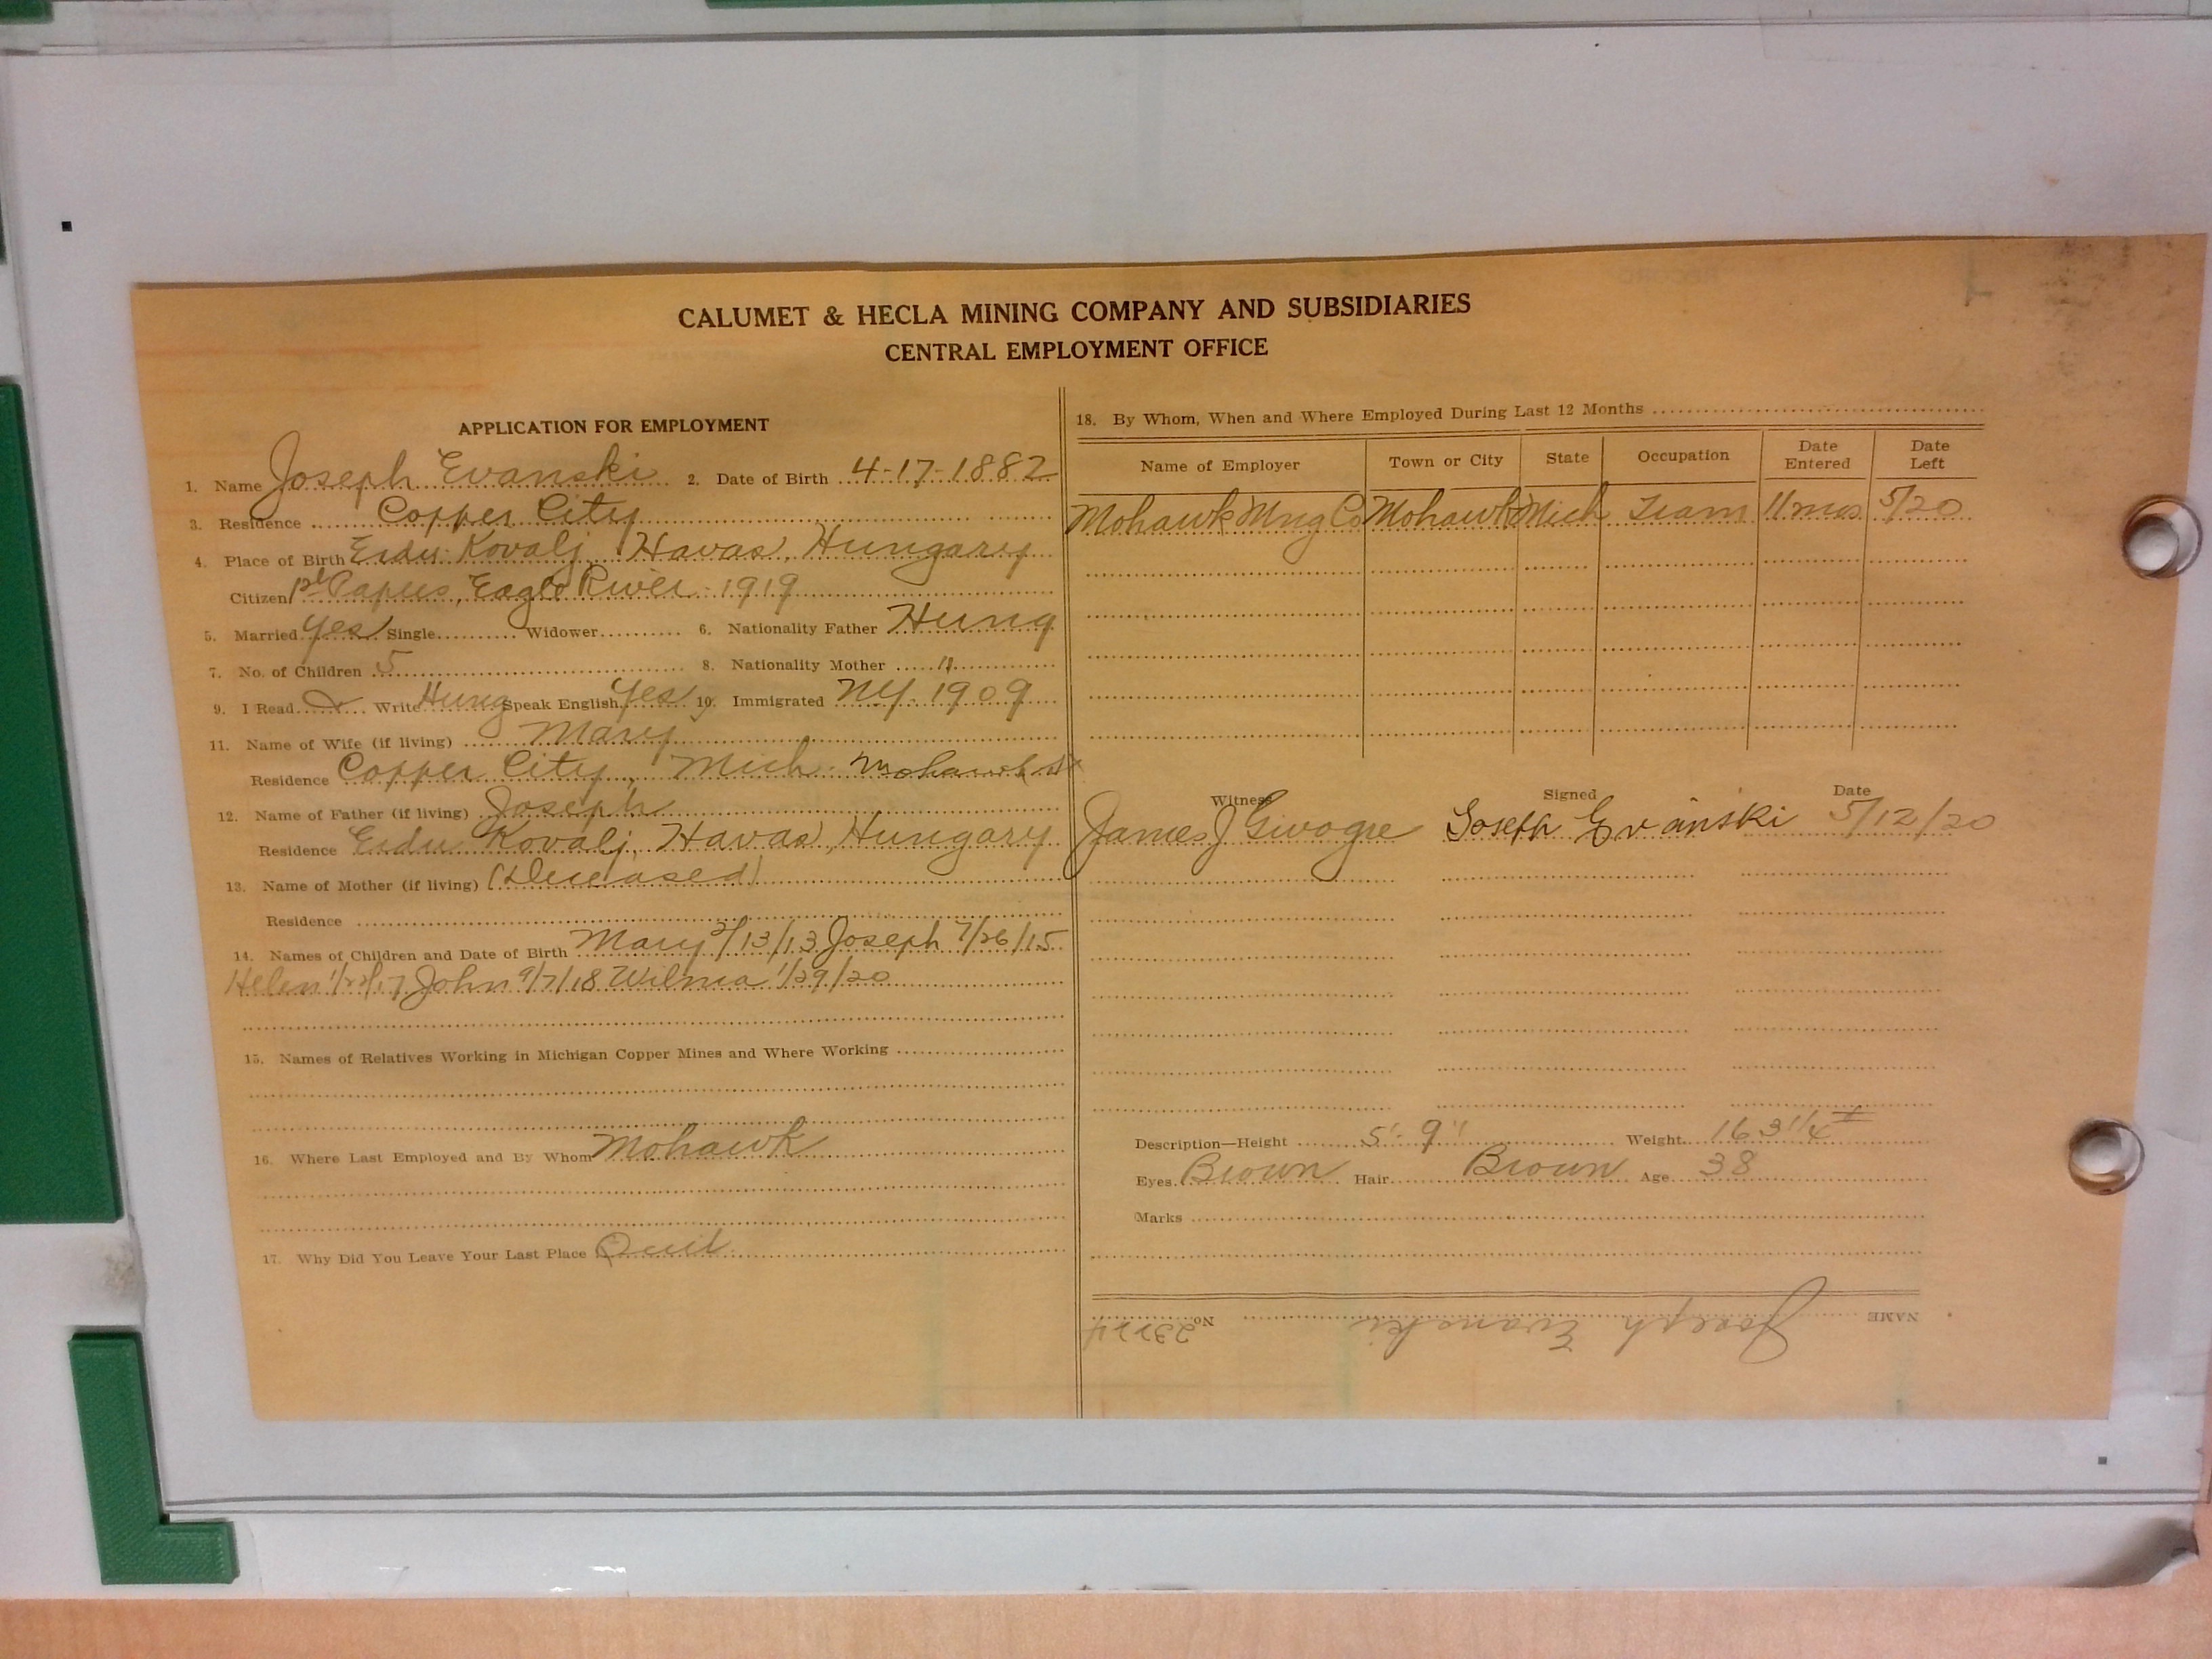 CALUMET & HECLA MINING COMPANY AND SUBSIDIARIES
CENTRAL EMPLOYMENT OFFICE
APPLICATION FOR EMPLOYMENT
1. Name Joseph Evanski 2. Date of Birth 4-17-1882
3. Residence Copper City
4. Place of Birth Erdu Kovalj, Havas, Hungary
Citizen 1st Papers, Eagle River - 1919
5. Married Yes Single Widower 6. Nationality Father Hung
7. No. of Children 5 8. Nationality Mother "
9. I Read Write Hung Speak English Yes 10. Immigrated NY. 1909
11. Name of Wife (if living) Mary
Residence Copper City, Mich. Mohawk St
12. Name of Father (if living) Joseph
Residence Erdu Kovalj, Havas, Hungary
13. Name of Mother (if living) (Deceased)
Residence
14. Names of Children and Date of Birth Mary /13/13 Joseph 7/26/15
Helen John 9/7/18 Wilma 1/29/20
15. Names of Relatives Working in Michigan Copper Mines and Where Working
16. Where Last Employed and By Whom Mohawk
17. Why Did You Leave Your Last Place Quit
18. By Whom, When and Where Employed During Last 12 Months
Name of Employer Town or City State Occupation Date Entered Date Left
Mohawk Mng Co Mohawk Mich Tram 11 mos 5/20
Witness Signed Date
James J Joseph Evanski 5/12/20
Description—Height 5'- 9" Weight 163 1/4 #
Eyes Brown Hair Brown Age 38
Marks
NAME Joseph Evanski No.